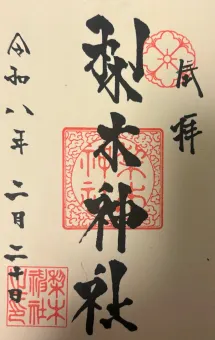 奉拝
梨木神社
令和八年二月二十日
梨木神社